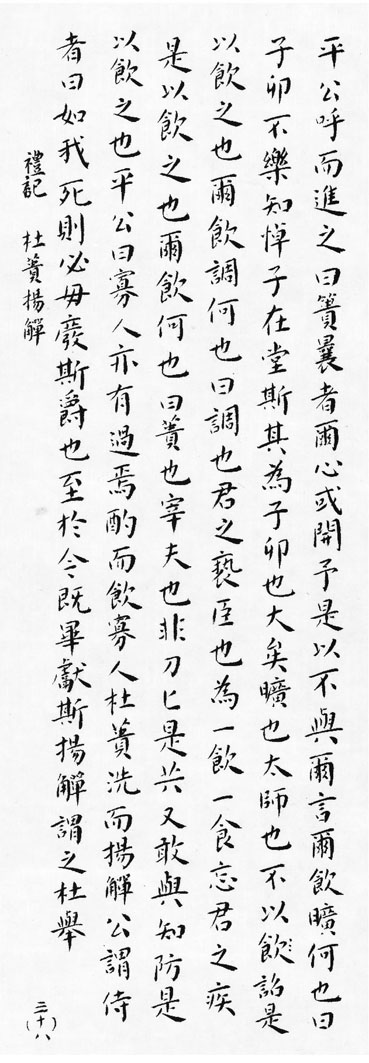 平公呼而進之曰簣曩者爾心或開予是以不與爾言爾飲曠何也曰
子卯不樂知悼子在堂斯其為子卯也大矣曠也太師也不以飲詔是
以飲之也爾飲調何也曰調也君之褻臣也為一飲一食忘君之疾
是以飲之也爾飲何也曰蕢也宰夫也非刀匕是共又敢與知防是
以飲之也平公曰寡人亦有過焉酌而飲寡人杜蕢洗而揚觶公謂侍
者曰如我死則必毋廢斯爵也至於今既畢獻斯揚觶謂之杜舉
禮記 杜蕢揚觶